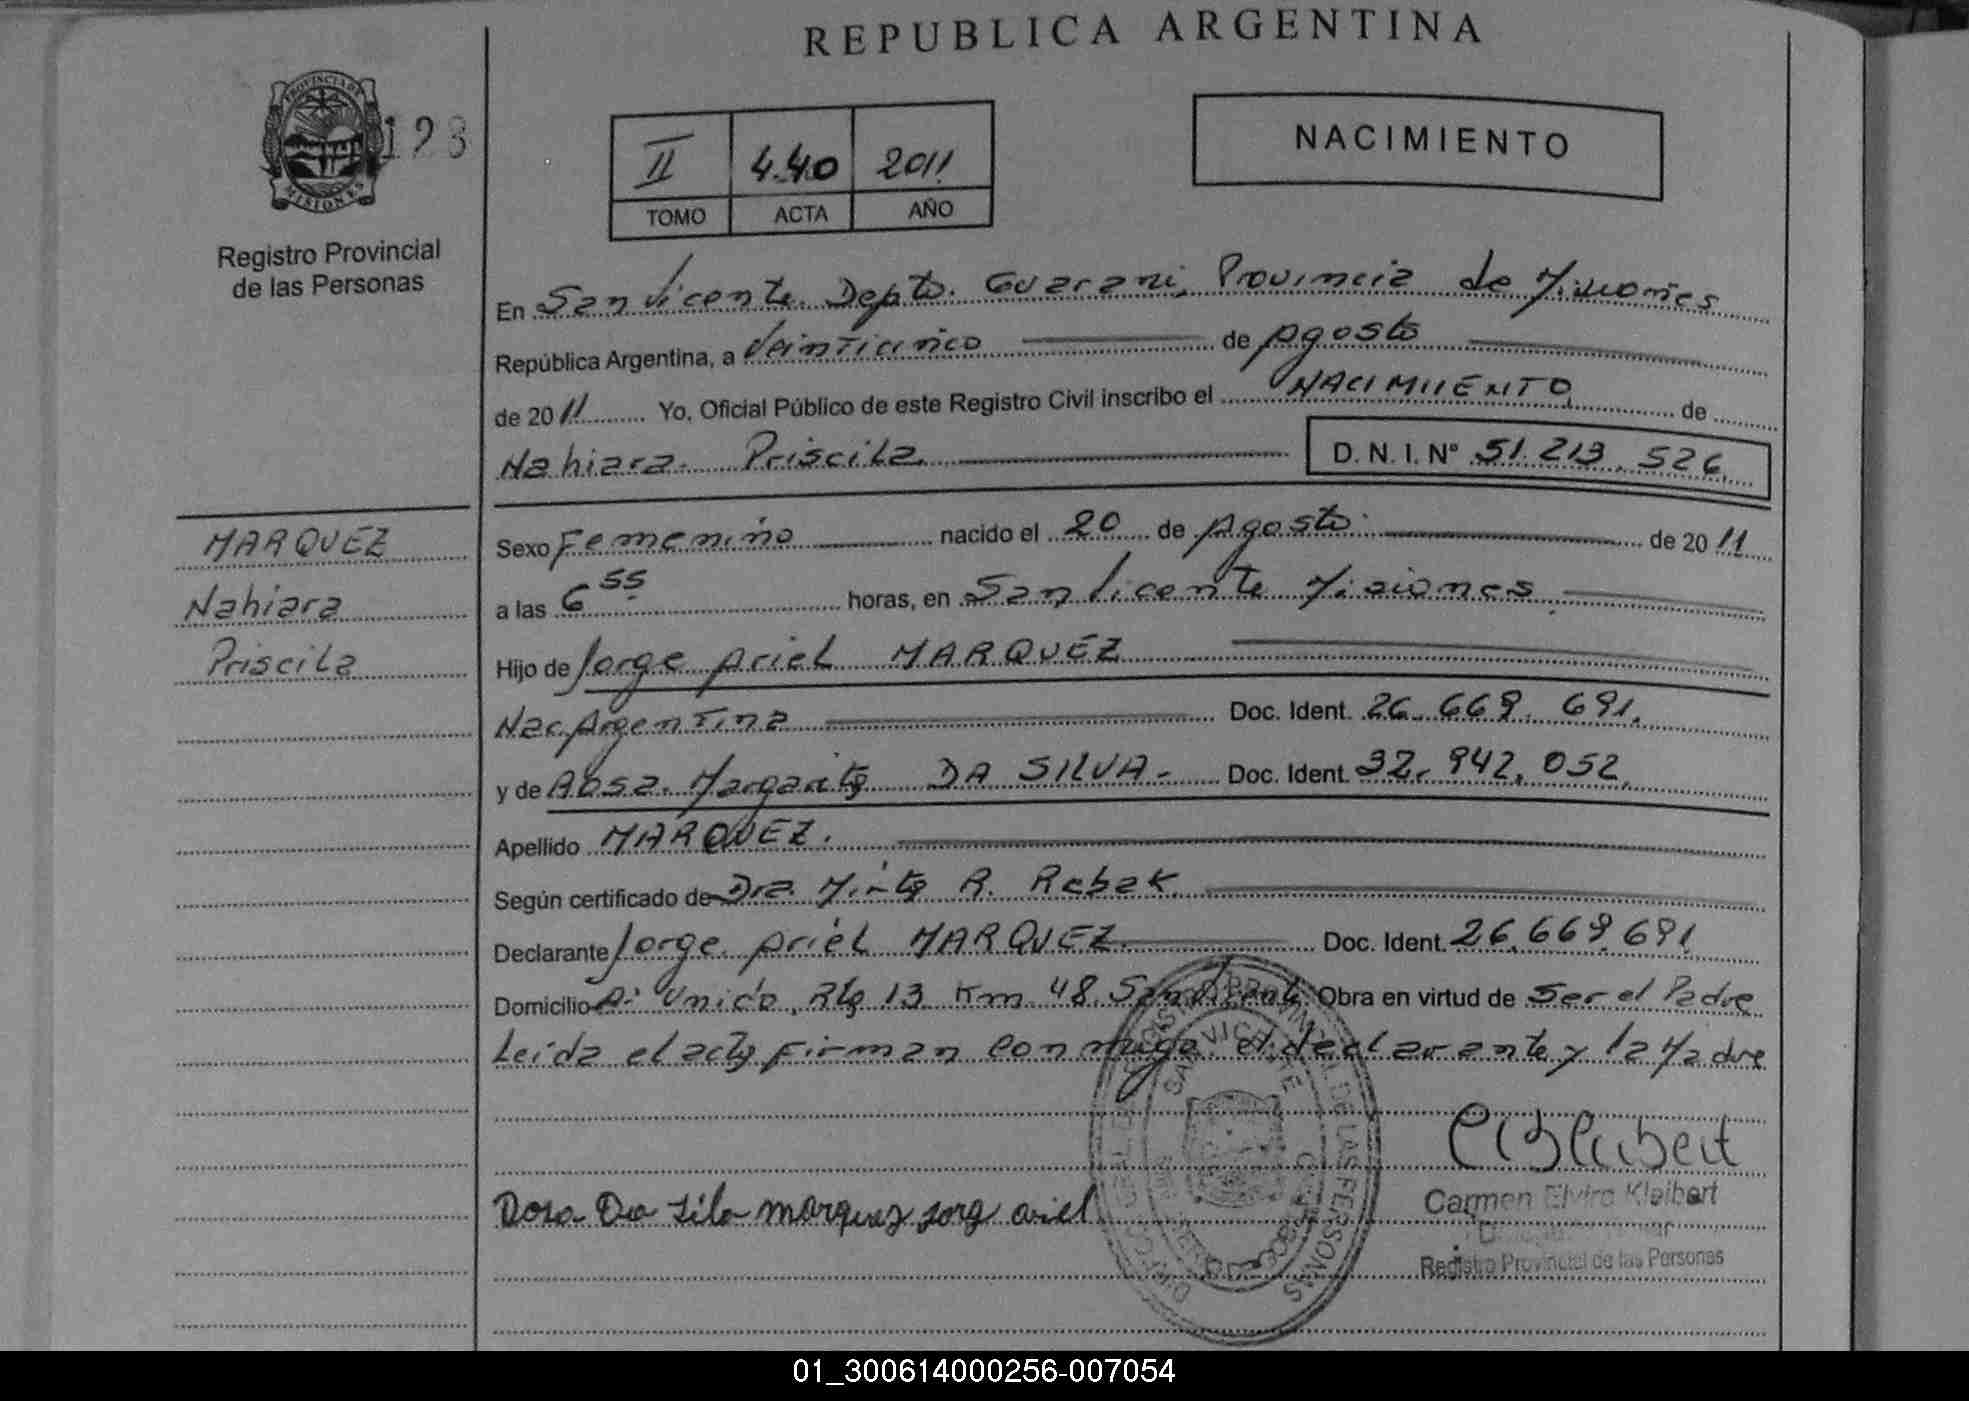 REPUBLICA ARGENTINA
PROVINCIA DE
MISIONES
123
Registro Provincial
de las Personas
II 440 2011
TOMO ACTA AÑO
NACIMIENTO
En San Vicente Depto. Guarani, Provincia de Misiones
República Argentina, a Veinticinco de Agosto
de 2011 Yo, Oficial Público de este Registro Civil inscribo el NACIMIENTO de
Nahiara Priscila D. N. I. Nº 51.213.526
MARQUEZ
Nahiara
Priscila
Sexo Femenino nacido el 20 de Agosto de 2011
a las 6 55 horas, en San Vicente Misiones
Hijo de Jorge Ariel MARQUEZ
Nac. Argentina Doc. Ident. 26.669.691.
y de Margarita DA SILVA - Doc. Ident. 32.942.052
Apellido MARQUEZ.
Según certificado de Dra. Mirta R. Rebak
Declarante Jorge Ariel MARQUEZ Doc. Ident. 26.669.691
Domicilio Unido, Rta 13 Km 48 San Vicente. Obra en virtud de Ser el Padre
Leida el acta firman conmigo el declarante y la Madre
Da Silva marquez jorg ariel
Carmen Elvira Kleibert
Registro Provincial de las Personas
SAN VICENTE
01_300614000256-007054